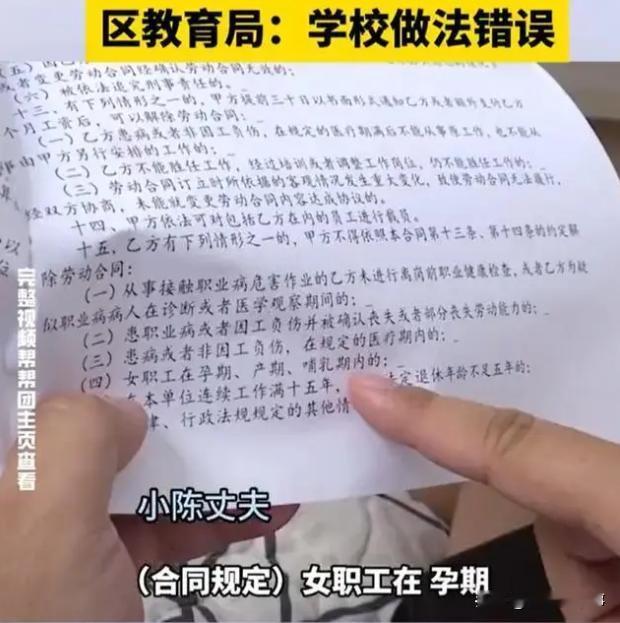 区教育局：学校做法错误
或者变更劳动合同经确认劳动合同无效的；
（六）被依法追究刑事责任的。
十三、有下列情形之一的，甲方提前三十日以书面形式通知乙方或者额外支付乙方
个月工资后，可以解除劳动合同：
（一）乙方患病或者非因工负伤，在规定的医疗期满后不能从事原工作，也不能从
由甲方另行安排的工作的；
（二）乙方不能胜任工作，经过培训或者调整工作岗位，仍不能胜任工作的；
（三）劳动合同订立时所依据的客观情况发生重大变化，致使劳动合同无法履行，
经双方协商，未能就变更劳动合同内容达成协议的。
十四、甲方依法可对包括乙方在内的员工进行裁员。
十五、乙方有下列情形之一的，甲方不得依照本合同第十三条、第十四条的约定解
除劳动合同：
（一）从事接触职业病危害作业的乙方未进行离岗前职业健康检查，或者乙方为疑
似职业病病人在诊断或者医学观察期间的；
（二）患职业病或者因工负伤并被确认丧失或者部分丧失劳动能力的；
（三）患病或者非因工负伤，在规定的医疗期内的；
（四）女职工在孕期、产期、哺乳期内的；
本单位连续工作满十五年，定退休年龄不足五年的；
律、行政法规规定的其他情
完整视频帮帮团主页查看
小陈丈夫
（合同规定）女职工在 孕期